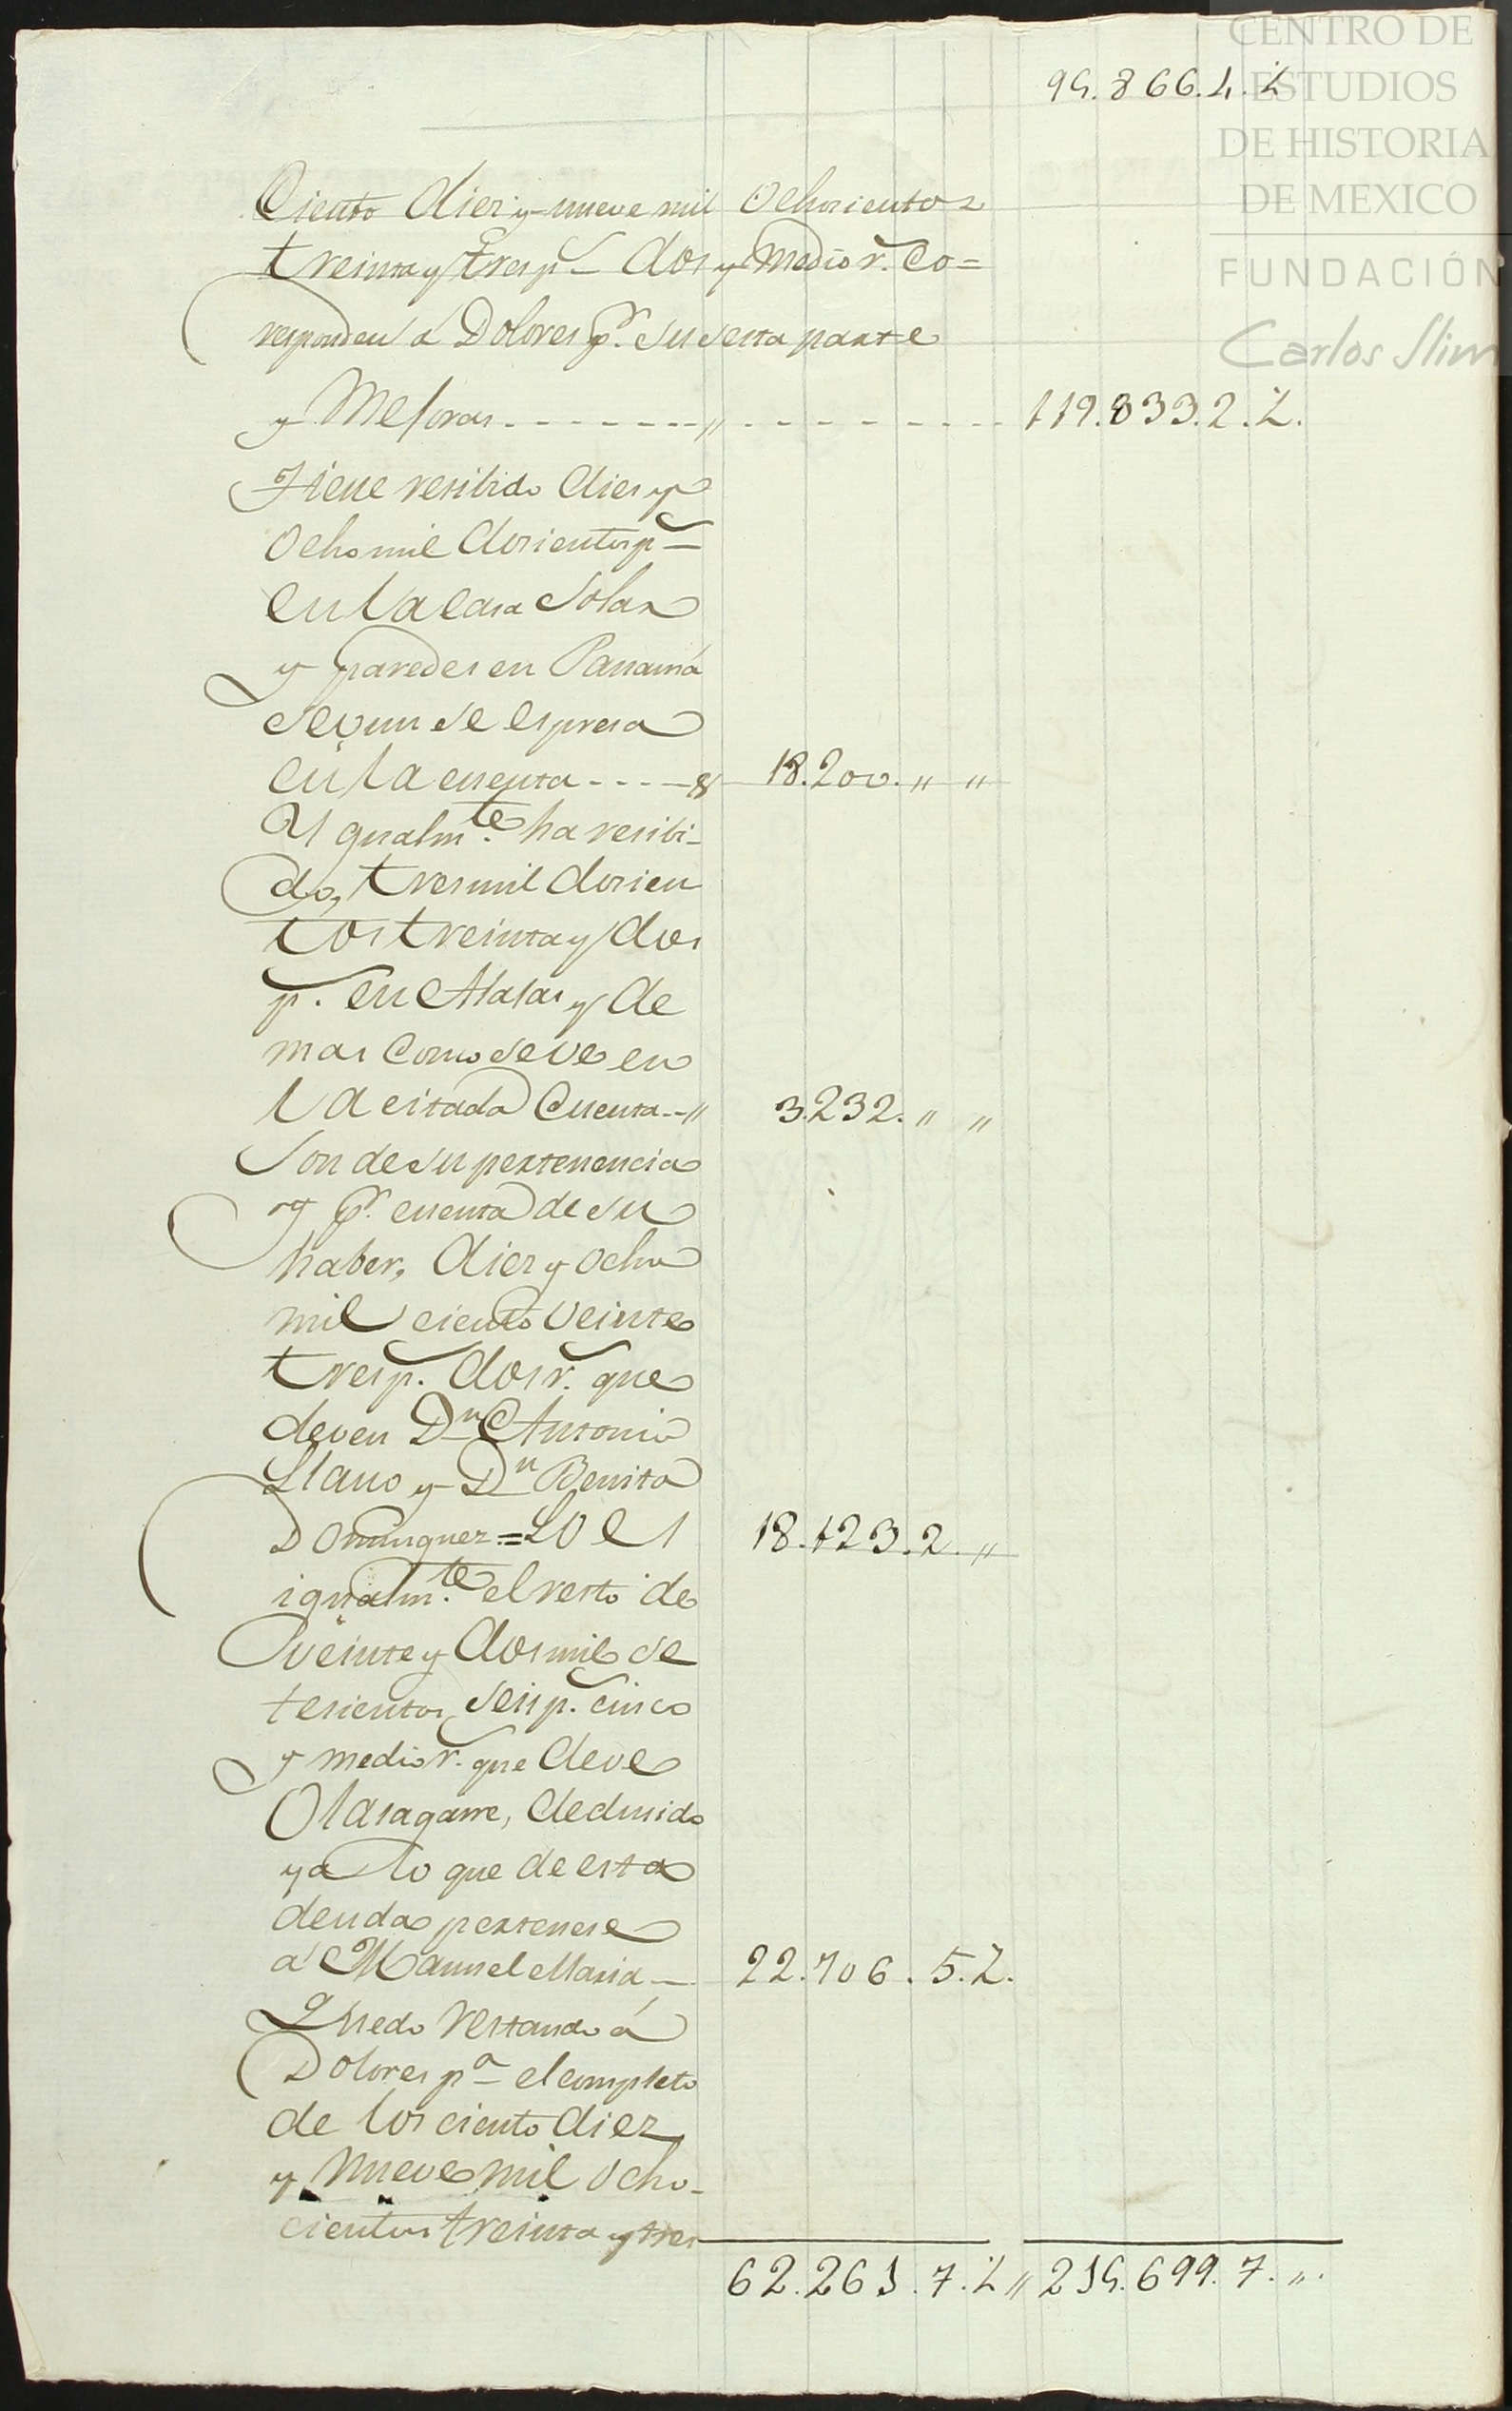 94.866.4.½
CENTRO DE
ESTUDIOS
DE HISTORIA
DE MEXICO
FUNDACIÓN
Carlos Slim
Ciento diez y nueve mil ochosientos
treinta y tres p.s dos y medio r.s Co=
responden á Dolores p.r su sesta parte
y Mejoras - - - - - - - " - - - - - - - - - 119.833.2.½.
Tiene resibido dies y
Ocho mil dosientos p.s
en la casa solar
y paredes en Panamá
segun se espresa
en la cuenta - - - - 18.200. " "
Ygualm.te ha resibi-
do, tres mil dosien
tos treinta y dos
p.s en Alajas y de
mas como se ve en
la citada Cuenta - - " 3.232. " "
Son de su pertenencia
y p.r cuenta de su
haber, diez y ocho
mil ciento veinte
tres p.s dos r.s que
deven D.n Antonio
Llano y D.n Benito
Dominguez = Lo es 18.123.2. "
igualm.te el resto de
veinte y dos mil se
tesientos seis p.s cinco
y medio r.s que deve
Olasagarre, dedusido
ya lo que de esta
deuda pertenese
á Manuel Maria - 22.706.5.½.
Quedo restando á
Dolores p.a el completo
de los ciento diez
y nueve mil ocho-
cientos treinta y tres
62.261.7.½ " 214.699.7. ".